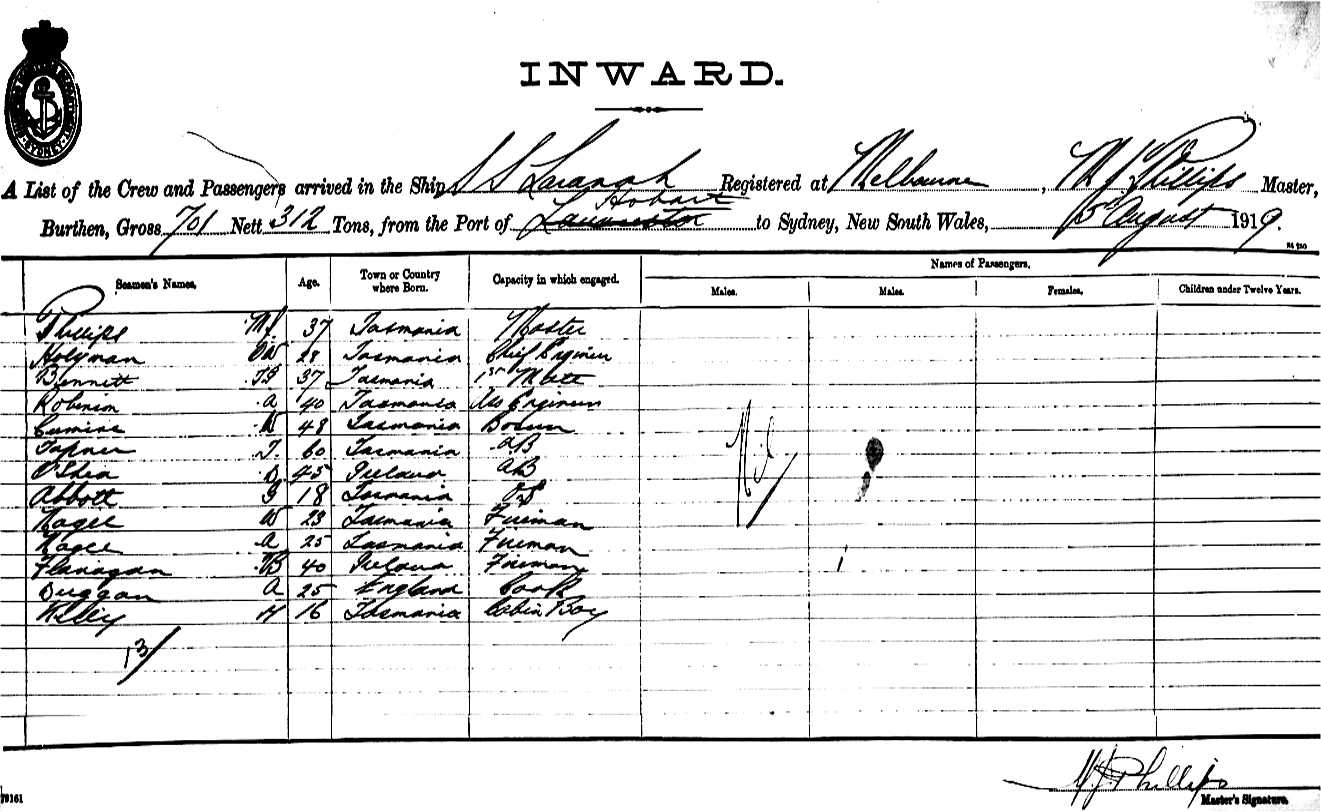 INWARD.
A List of the Crew and Passengers arrived in the Ship S S Registered at Melbourne, M J Phillips Master,
Hobart
Burthen, Gross 701 Nett 312 Tons, from the Port of Launceston to Sydney, New South Wales, 5th August 1919.
Seamen's Names. Age. Town or Country where Born. Capacity in which engaged. Names of Passengers.
Males. Males. Females. Children under Twelve Years.
Phillips M J 37 Tasmania Master
Holyman 28 Tasmania Chief Engineer
Bennett 37 Tasmania 1st Mate
Robinson A 40 Tasmania Engineer
W 48 Tasmania Bosun
Tapner T. 60 Tasmania AB
O'Shea D 45 Ireland AB
Abbott G 18 Tasmania OS
Magee W 23 Tasmania Fireman
Magee A 25 Tasmania Fireman
Flanagan 40 Ireland Fireman
Duggan A 25 England Cook
Kelly H 16 Tasmania Cabin Boy
Nil
13/
M J Phillips
Master's Signature.